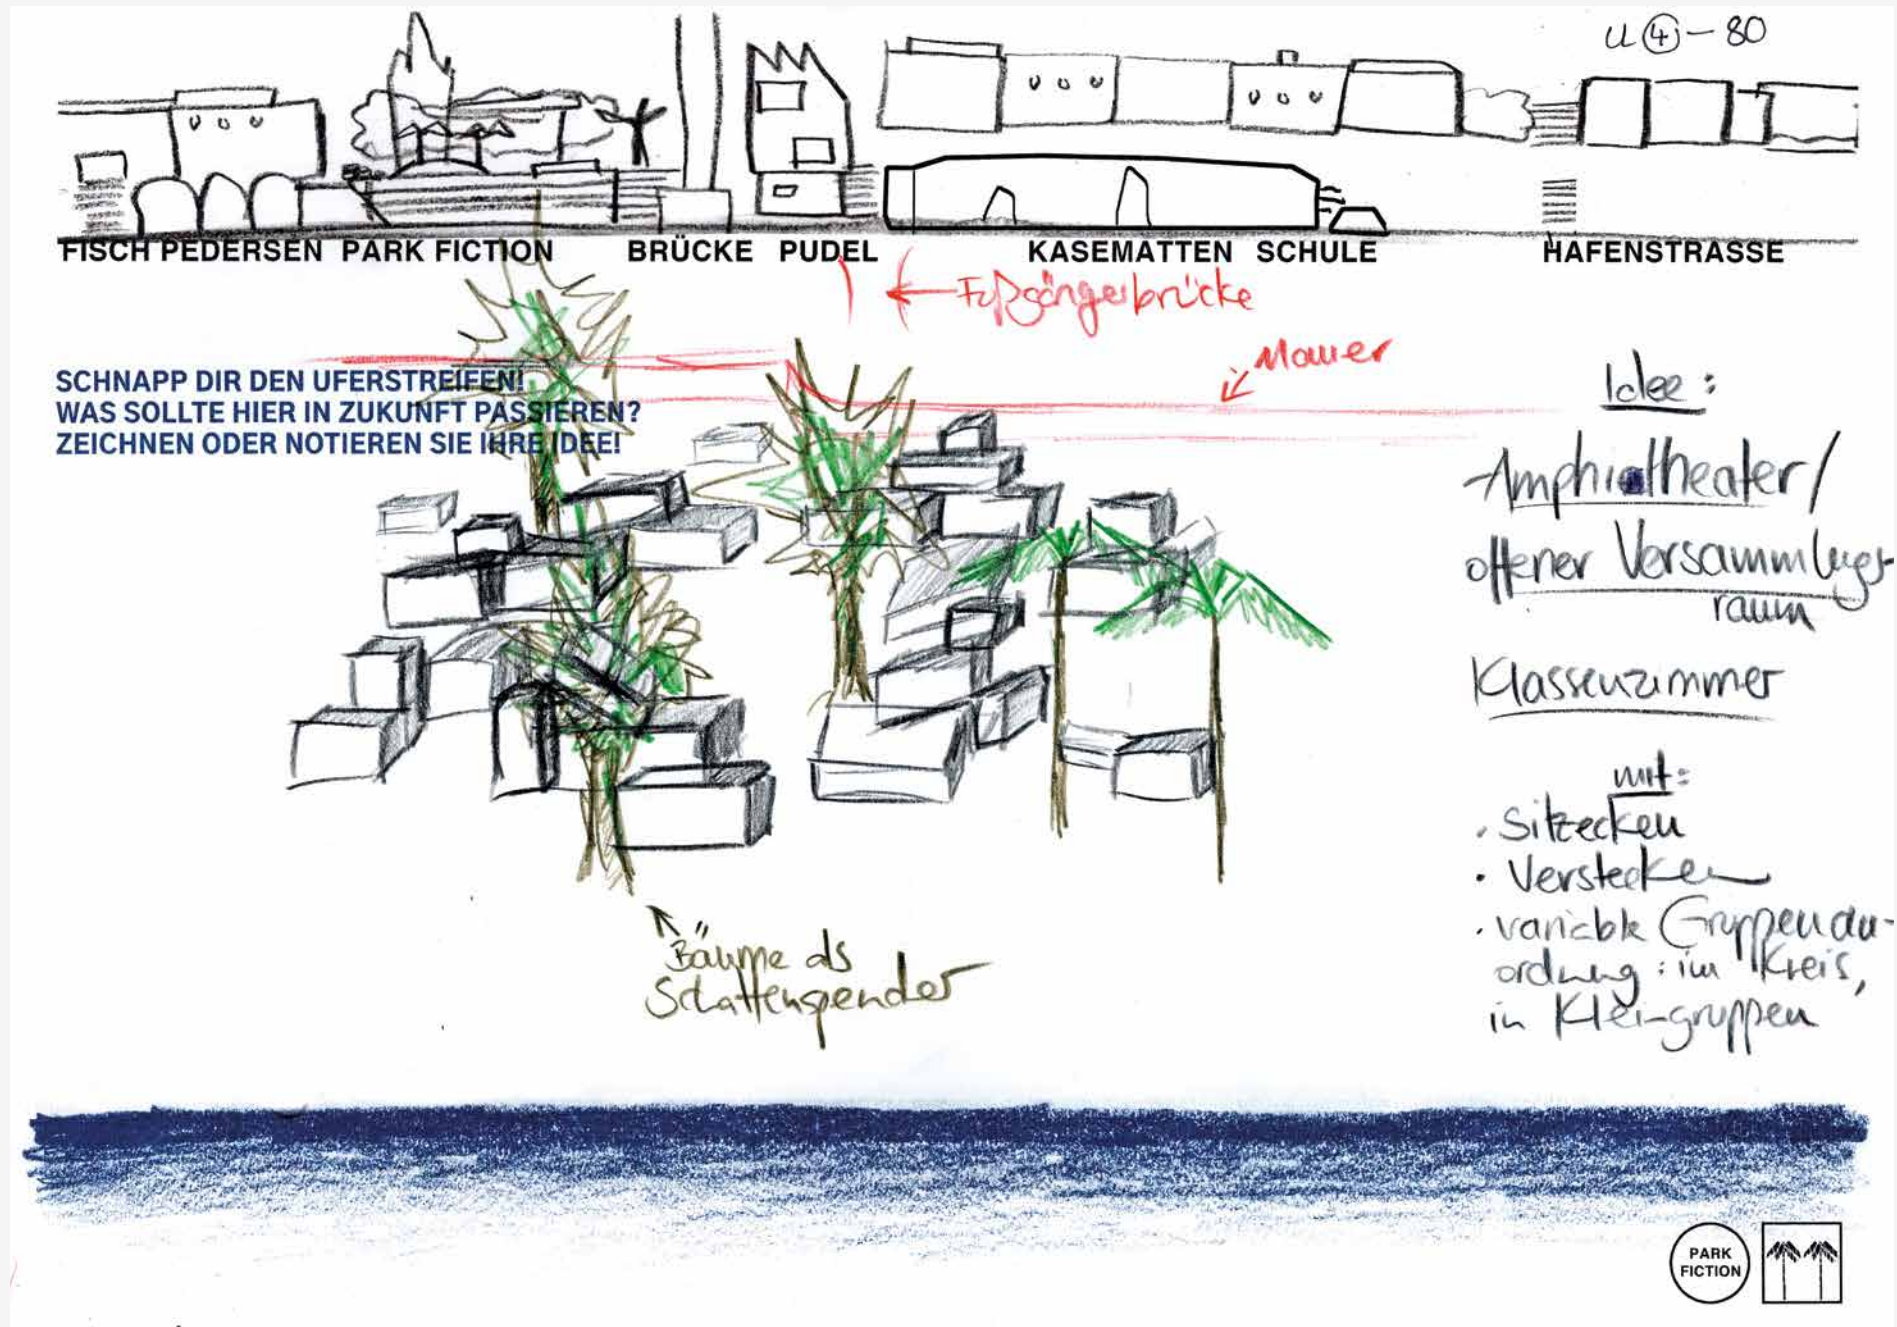 U ④ - 80
FISCH PEDERSEN PARK FICTION BRÜCKE PUDEL KASEMATTEN SCHULE HAFENSTRASSE
Fußgängerbrücke
Mauer
SCHNAPP DIR DEN UFERSTREIFEN!
WAS SOLLTE HIER IN ZUKUNFT PASSIEREN?
ZEICHNEN ODER NOTIEREN SIE IHRE IDEE!
Idee:
Amphitheater/
offener Versammlungs-
raum
Klassenzimmer
mit:
• Sitzecken
• Verstecken
• variable Gruppenan-
ordnung: im Kreis,
in Kleingruppen
Bäume als
Schattenspender
PARK
FICTION